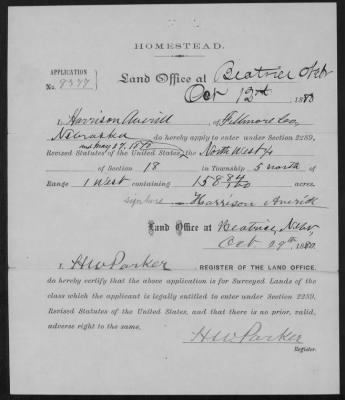 HOMESTEAD.
APPLICATION
No.
Land Office at Beatrice Neb
Oct 12th 1880
I, Harrison Averill of Fillmore Co,
Nebraska do hereby apply to enter under Section 2289,
Revised Statutes of the United States, the North West ¼
of Section 18 in Township 5 north of
Range 1 West containing 158 84/100 acres.
signature Harrison Averill
Land Office at Beatrice, Nebr,
Oct. 29th 1880.
I, H W Parker, REGISTER OF THE LAND OFFICE,
do hereby certify that the above application is for Surveyed Lands of the
class which the applicant is legally entitled to enter under Section 2289,
Revised Statutes of the United States, and that there is no prior, valid,
adverse right to the same.
H W Parker
Register.